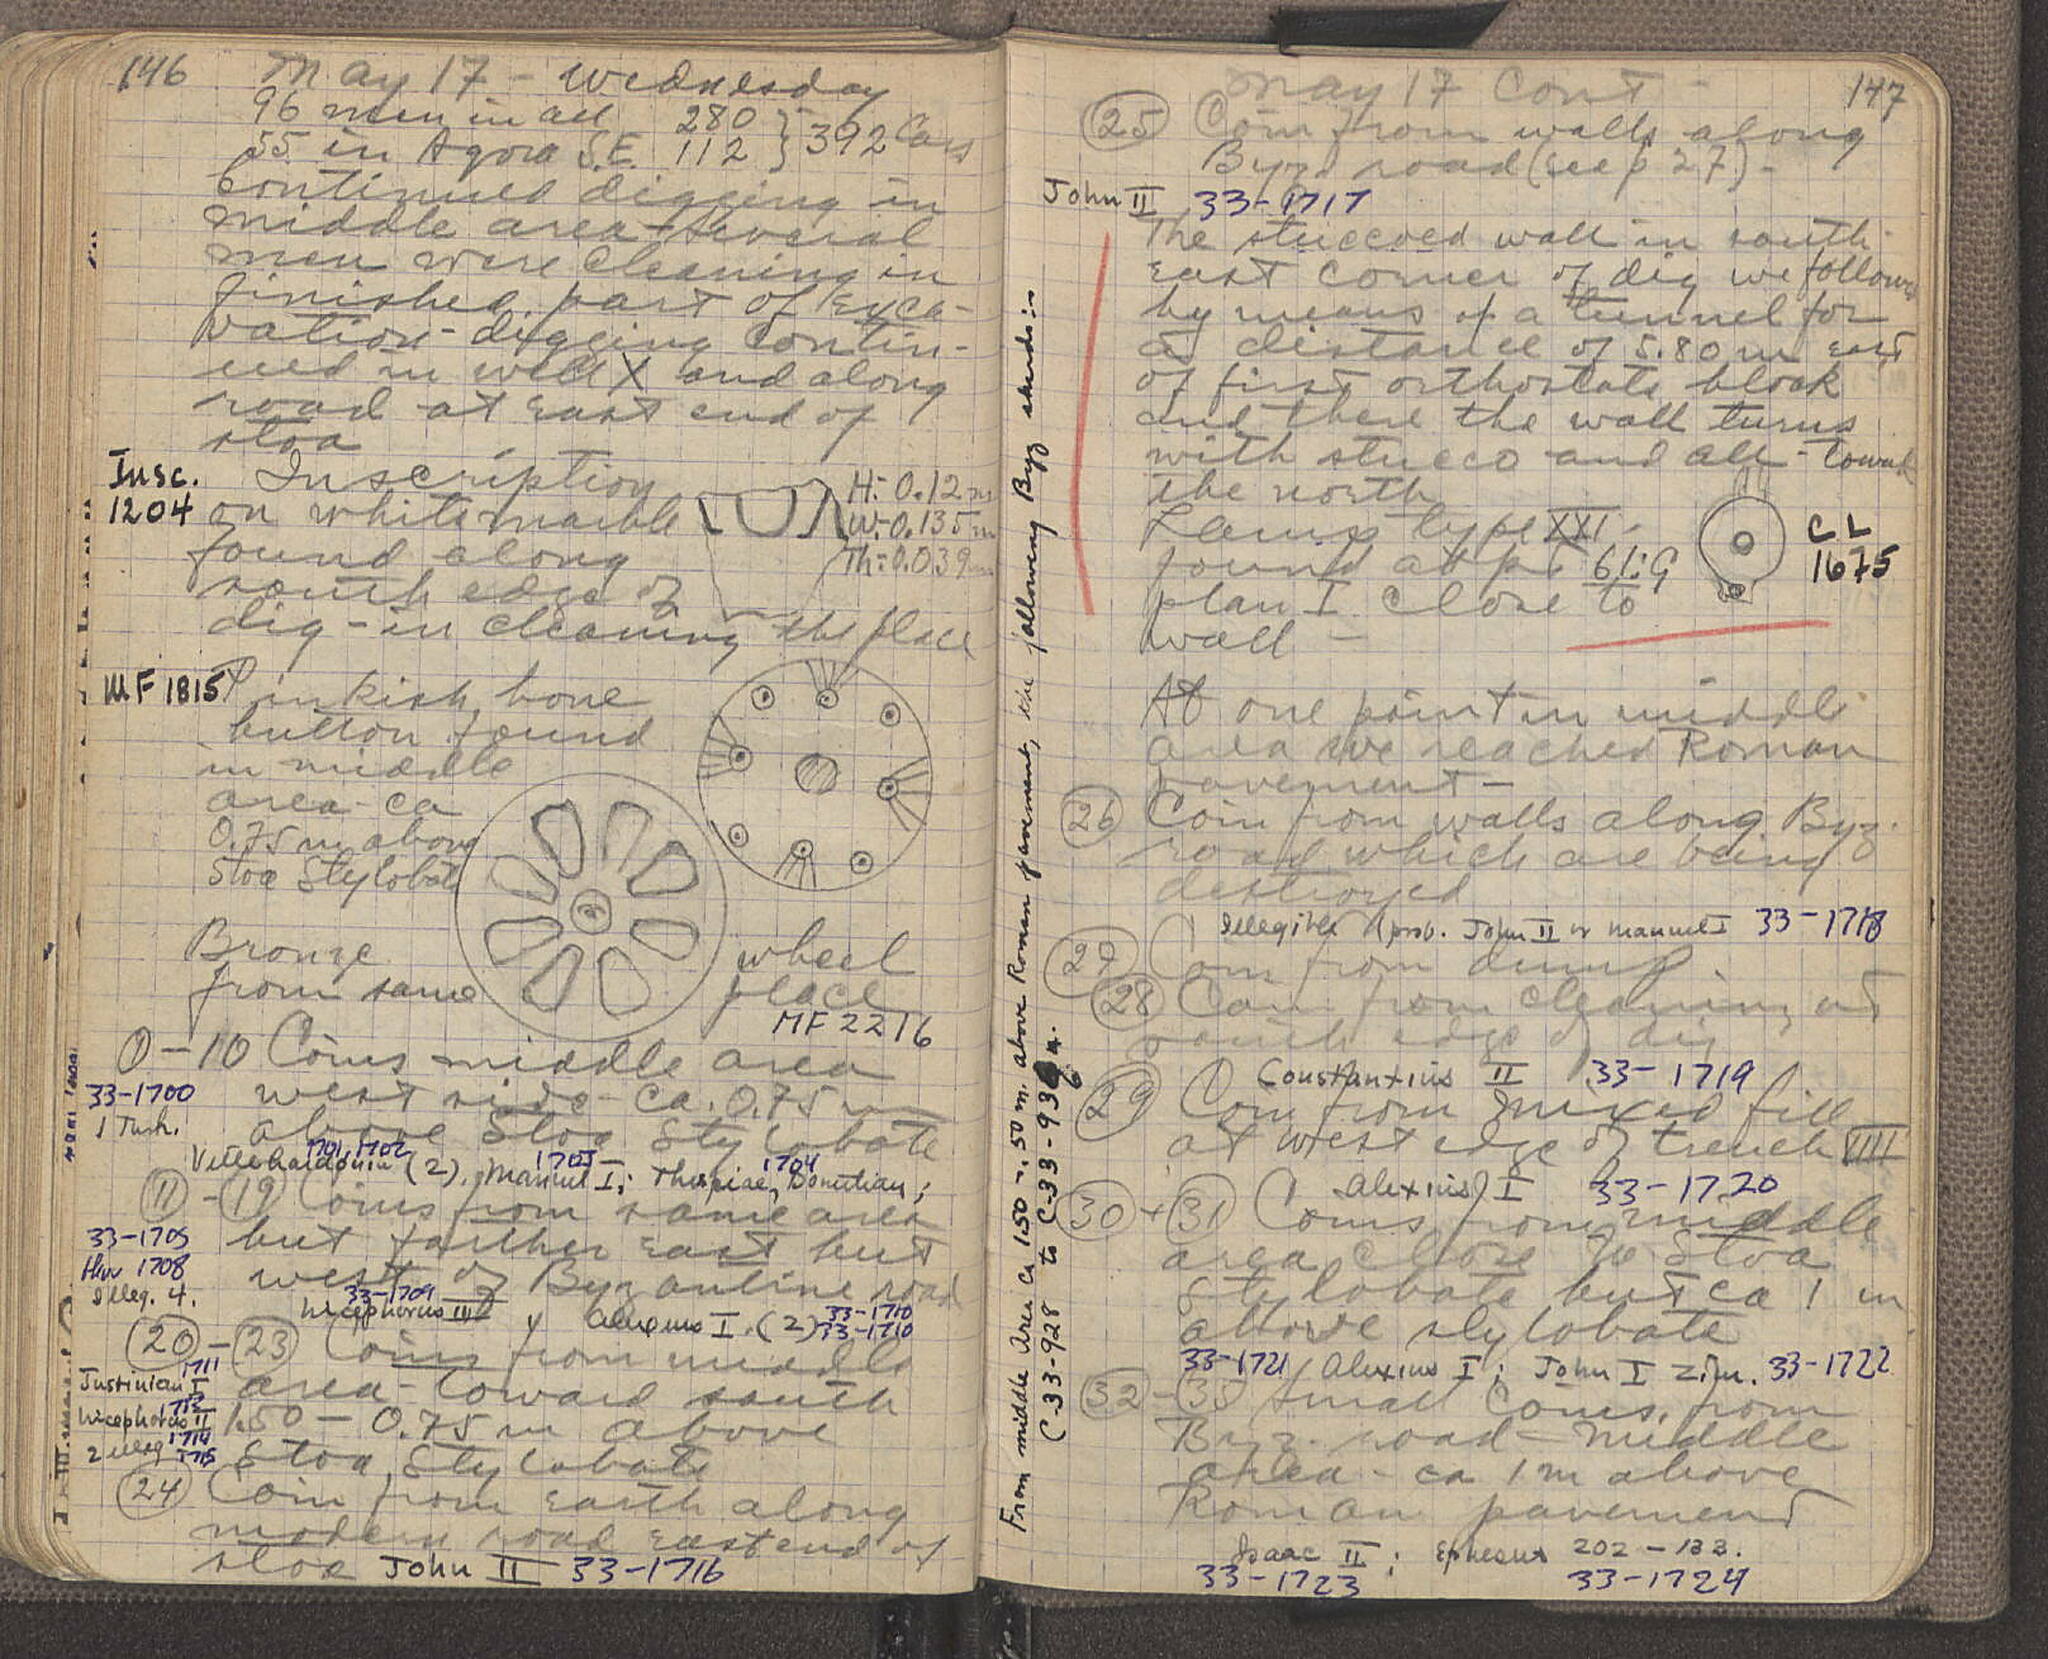 146 May 17 - Wednesday
96 men in all 280
55 in Agora S.E. 112 } 392 Cars
Continued digging in
middle area - Several
men were cleaning in
finished part of exca-
vation - digging contin-
ued in well X and along
road at east end of
stoa
Insc. 1204
Inscription
on white marble
found along
south edge of
dig - in cleaning the place
H: 0.12 m
W: 0.135 m
Th: 0.039 m
MF 1815
Pinkish bone
button found
in middle
area - ca
0.75 m above
Stoa Stylobate
Bronze wheel
from same place
MF 2216
1 - 10 Coins middle area
west side - ca. 0.75 m
above Stoa Stylobate
33-1700
1 Turk.
1701, 1702 1703 1704
Villehardouin (2), Manuel I; Thespiae, Domitian;
11 - 19 Coins from same area
but farther east but
west of Byzantine road
33-1705
thru 1708
Illeg. 4.
33-1709
Nicephorus III y Alexius I. (2) 33-1710
33-1710
20 - 23 Coins from middle
area - toward south
1.50 - 0.75 m above
Stoa Stylobate
1711
Justinian I
1712
Nicephorus II
2 illeg 1714
1715
24 Coin from earth along
modern road east end of
stoa John II 33-1716
147
May 17 Cont -
25 Coin from walls along
Byz. road (see p 27) -
John II 33-1717
The stuccoed wall in south
east corner of dig we followed
by means of a tunnel for
a distance of 5.80 m east
of first orthostate block
and there the wall turns
with stucco and all - toward
the north
Lamp type XXI -
found at pt 61:G
plan I close to
wall -
CL
1675
At one point in middle
area we reached Roman
pavement -
26 Coin from walls along Byz.
road which are being
destroyed
Illegible prob. John II or Manuel I 33-1718
27 Coin from dump.
28 Coin from cleaning at
south edge of dig
Constantius II 33-1719
29 Coin from mixed fill
at west edge of trench IIII
Alexius I 33-1720
30 + 31 Coins from middle
area close to Stoa
Stylobate but ca 1 m
above stylobate
33-1721 Alexius I; John I Zim. 33-1722
32 - 35 Small Coins from
Byz. road - middle
area - ca 1 m above
Roman pavement
Isaac II; Ephesus 202-133.
33-1723 33-1724
From middle Area ca 1.50 - .50 m. above Roman pavement, the following Byz sherds:
C-33-928 to C-33-936